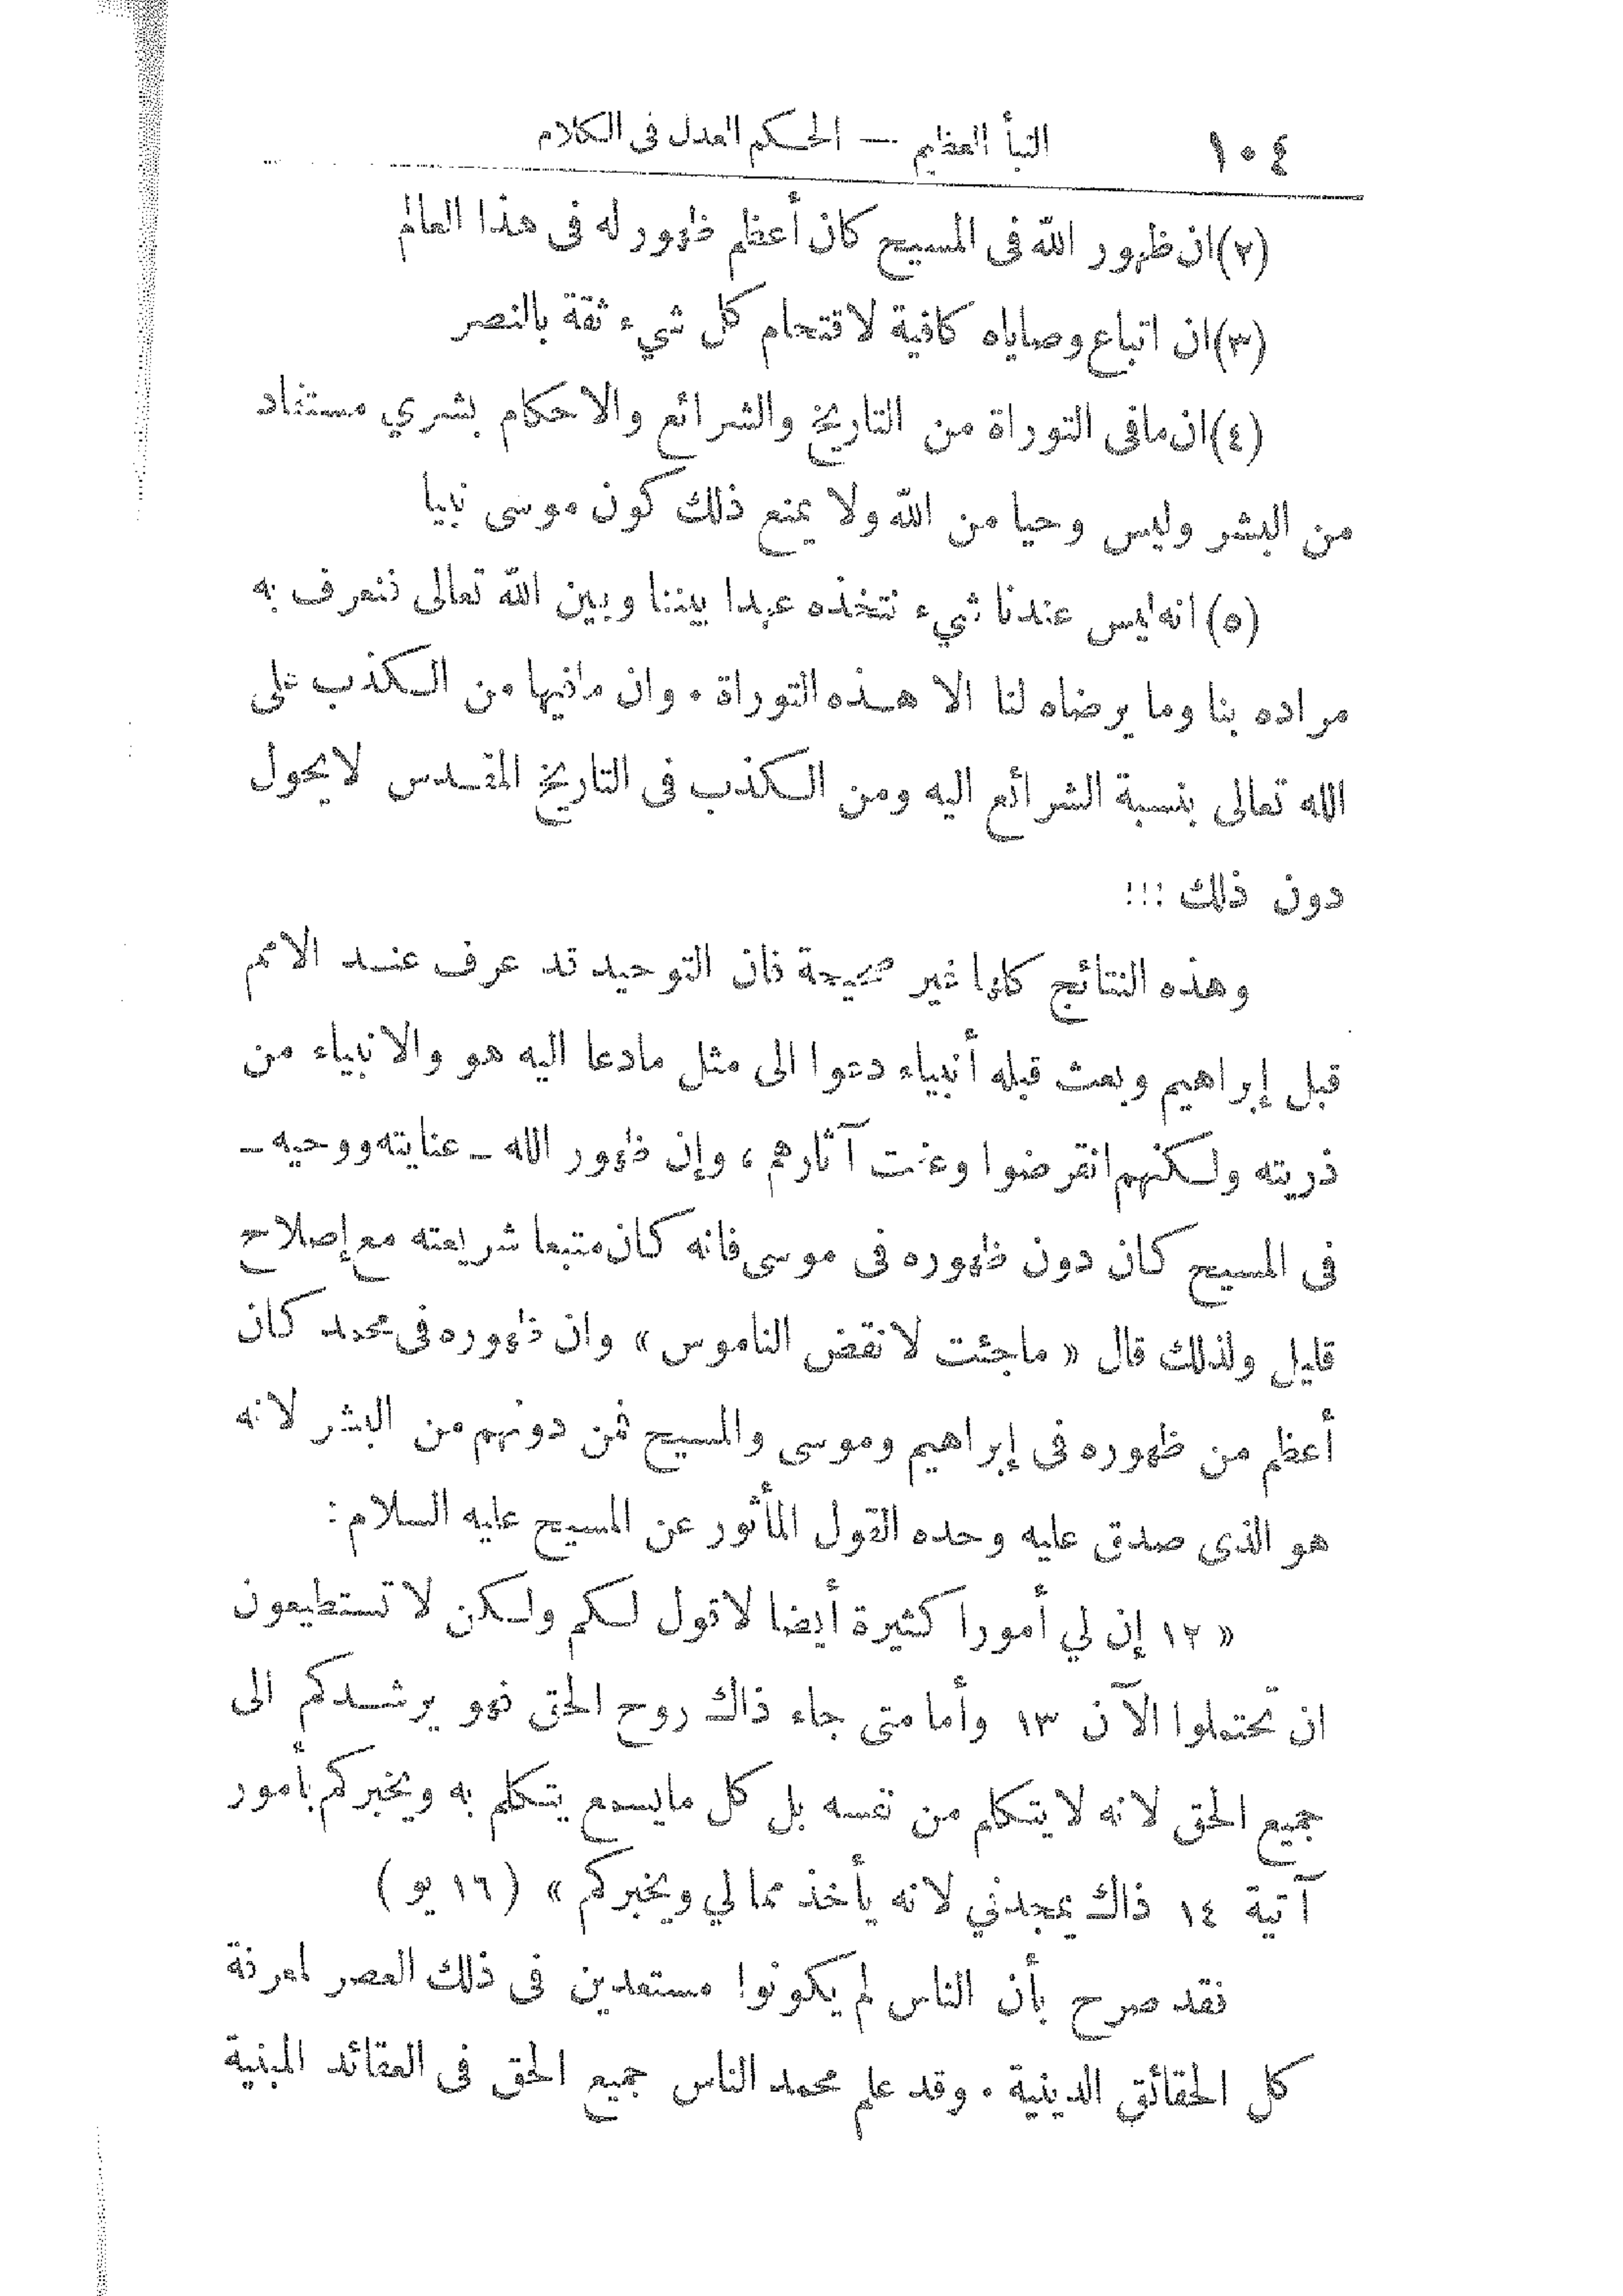 ١٠٤ النبأ العظيم — الحكم العدل فى الكلام
(٢) ان ظهور الله فى المسيح كان أعظم ظهور له فى هذا العالم
(٣) ان اتباع وصاياه كافية لاقتحام كل شيء ثقة بالنصر
(٤) ان مافى التوراة من التاريخ والشرائع والاحكام بشري مستفاد
من البشر وليس وحيا من الله ولا يمنع ذلك كون موسى نبيا
(٥) انه ليس عندنا شيء نتخذه عهدا بيننا وبين الله تعالى نتعرف به
مراده بنا وما يرضاه لنا الا هذه التوراة. وان مافيها من الكذب على
الله تعالى بنسبة الشرائع اليه ومن الكذب فى التاريخ المقدس لايحول
دون ذلك !!!
وهذه النتائج كلها غير صحيحة فان التوحيد قد عرف عند الامم
قبل إبراهيم وبعث قبله أنبياء دعوا الى مثل مادعا اليه هو والانبياء من
ذريته ولكنهم انقرضوا وعفت آثارهم ، وإن ظهور الله ـ عنايته ووحيه ـ
فى المسيح كان دون ظهوره فى موسى فانه كان متبعا شريعته مع إصلاح
قليل ولذلك قال « ماجئت لانقض الناموس » وان ظهوره فى محمد كان
أعظم من ظهوره فى إبراهيم وموسى والمسيح فمن دونهم من البشر لانه
هو الذى صدق عليه وحده القول المأثور عن المسيح عليه السلام :
« ١٢ إن لي أمورا كثيرة أيضا لاقول لكم ولكن لا تستطيعون
ان تحتملوا الآن ١٣ وأما متى جاء ذاك روح الحق فهو يرشدكم الى
جميع الحق لانه لا يتكلم من نفسه بل كل مايسمع يتكلم به ويخبركم بأمور
آتية ١٤ ذاك يمجدني لانه يأخذ مما لي ويخبركم » ( ١٦ يو )
فقد صرح بأن الناس لم يكونوا مستعدين فى ذلك العصر لمعرفة
كل الحقائق الدينية . وقد علم محمد الناس جميع الحق فى العقائد المبنية